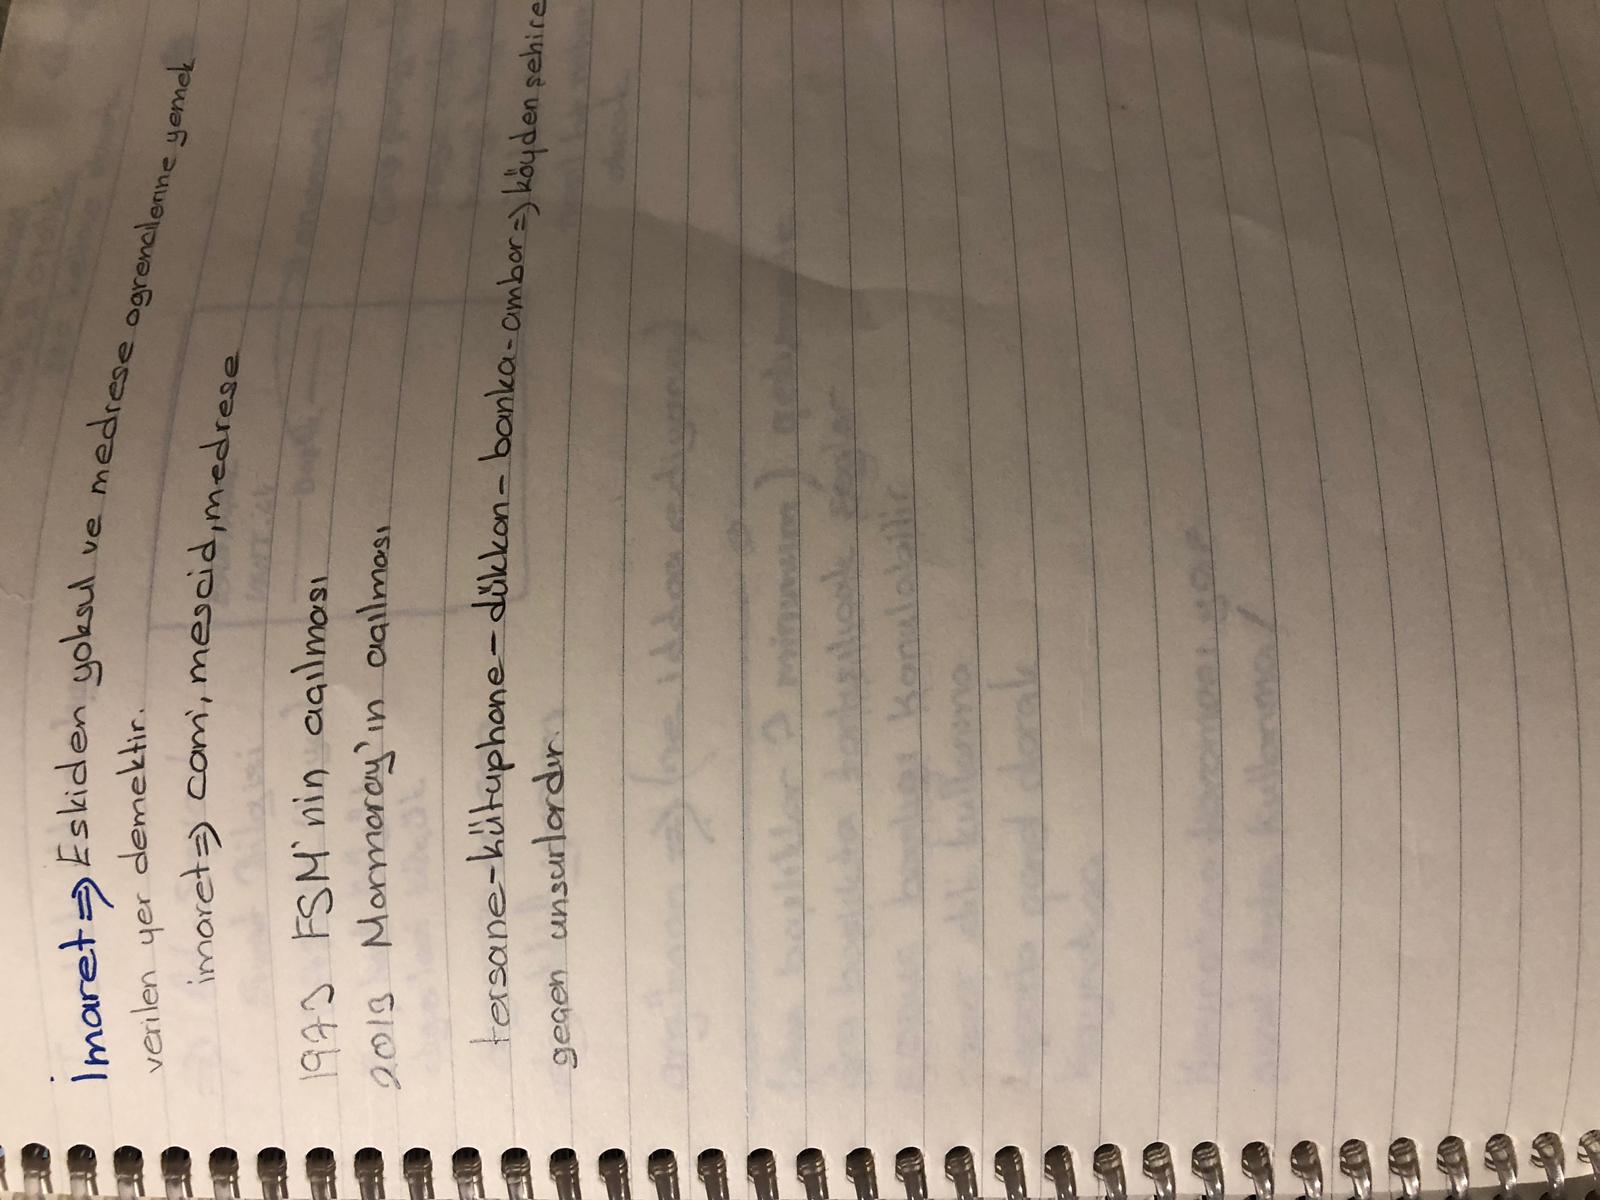 İmaret => Eskiden yoksul ve medrese ogrencilerine yemek
verilen yer demektir.
imaret => cami, mescid, medrese
1973 FSM'nin açılması
2013 Marmaray'ın açılması
tersane-kütüphane-dükkan-banka-ambar => köyden şehire
geçen unsurlardır.